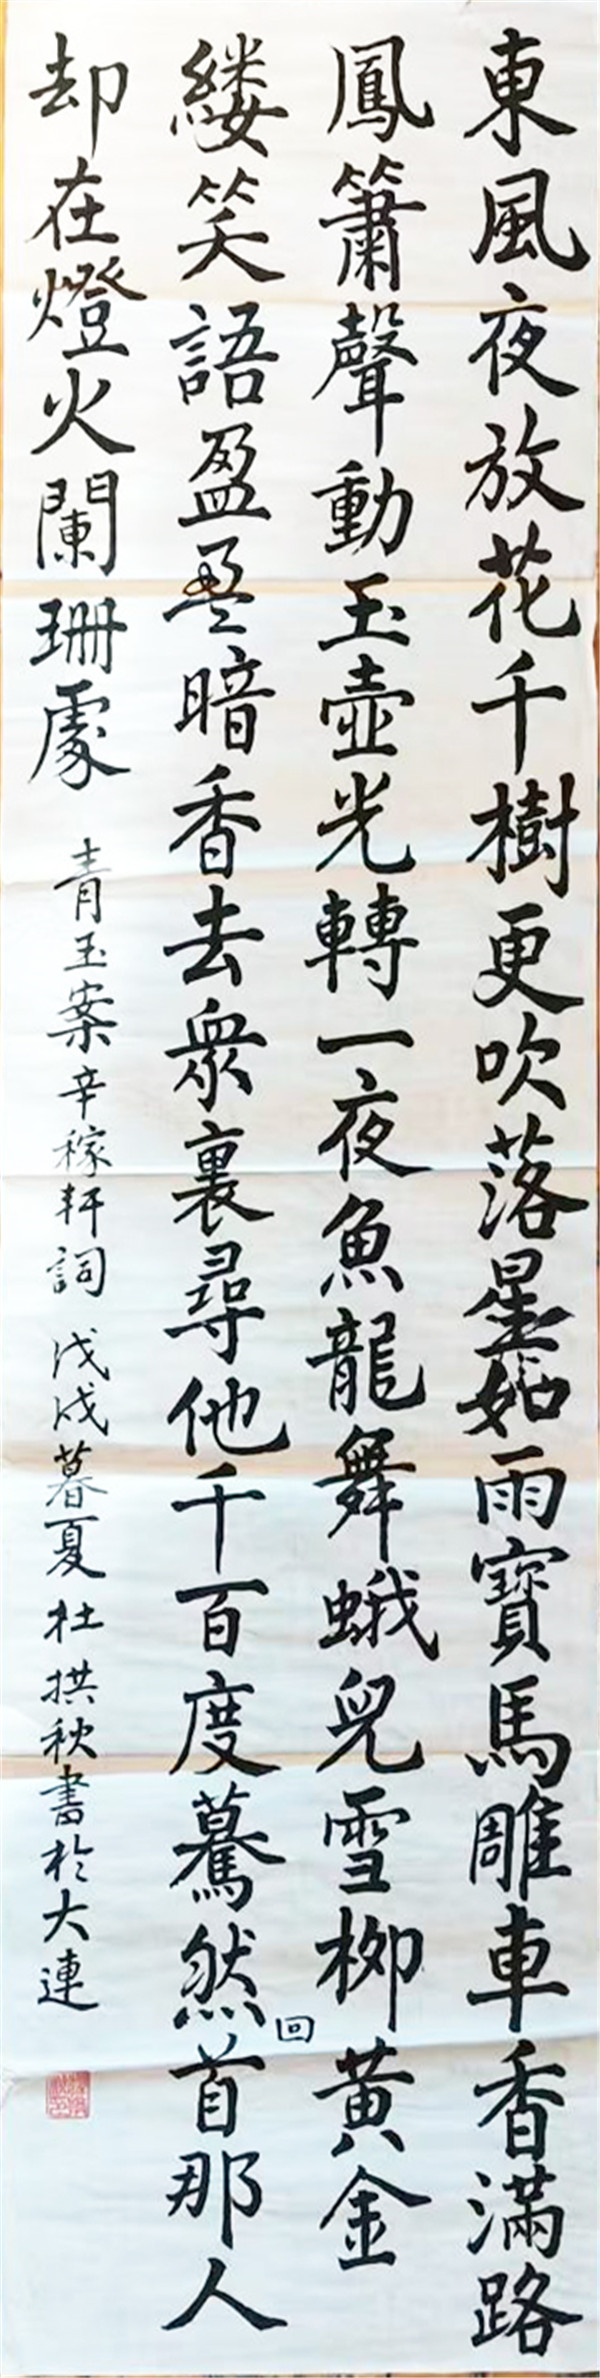 東風夜放花千樹更吹落星如雨寶馬雕車香滿路
鳳簫聲動玉壺光轉一夜魚龍舞蛾兒雪柳黃金
縷笑語盈盈暗香去衆裏尋他千百度驀然回首那人
却在燈火闌珊處 青玉案辛稼軒詞 戊戌暮夏杜拱秋書於大連